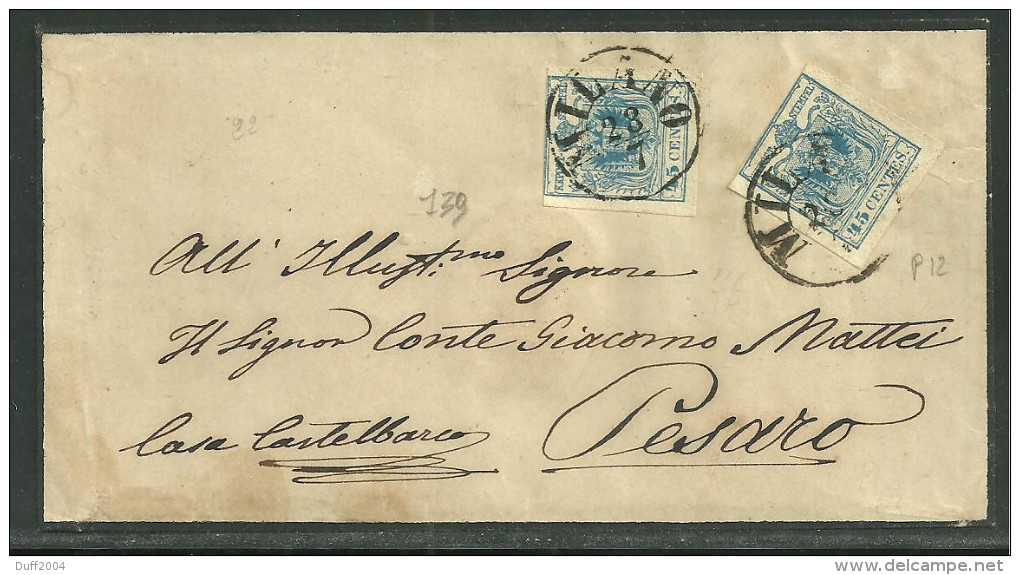 MILANO
28
45 CENTES.
STEMPEL
MIL
45 CENTES.
22
139
P 12
All' Illust.mo Signore
Il Signor Conte Giacomo Mattei
Casa Castelbarco Pesaro
Duff2004
delcampe.net